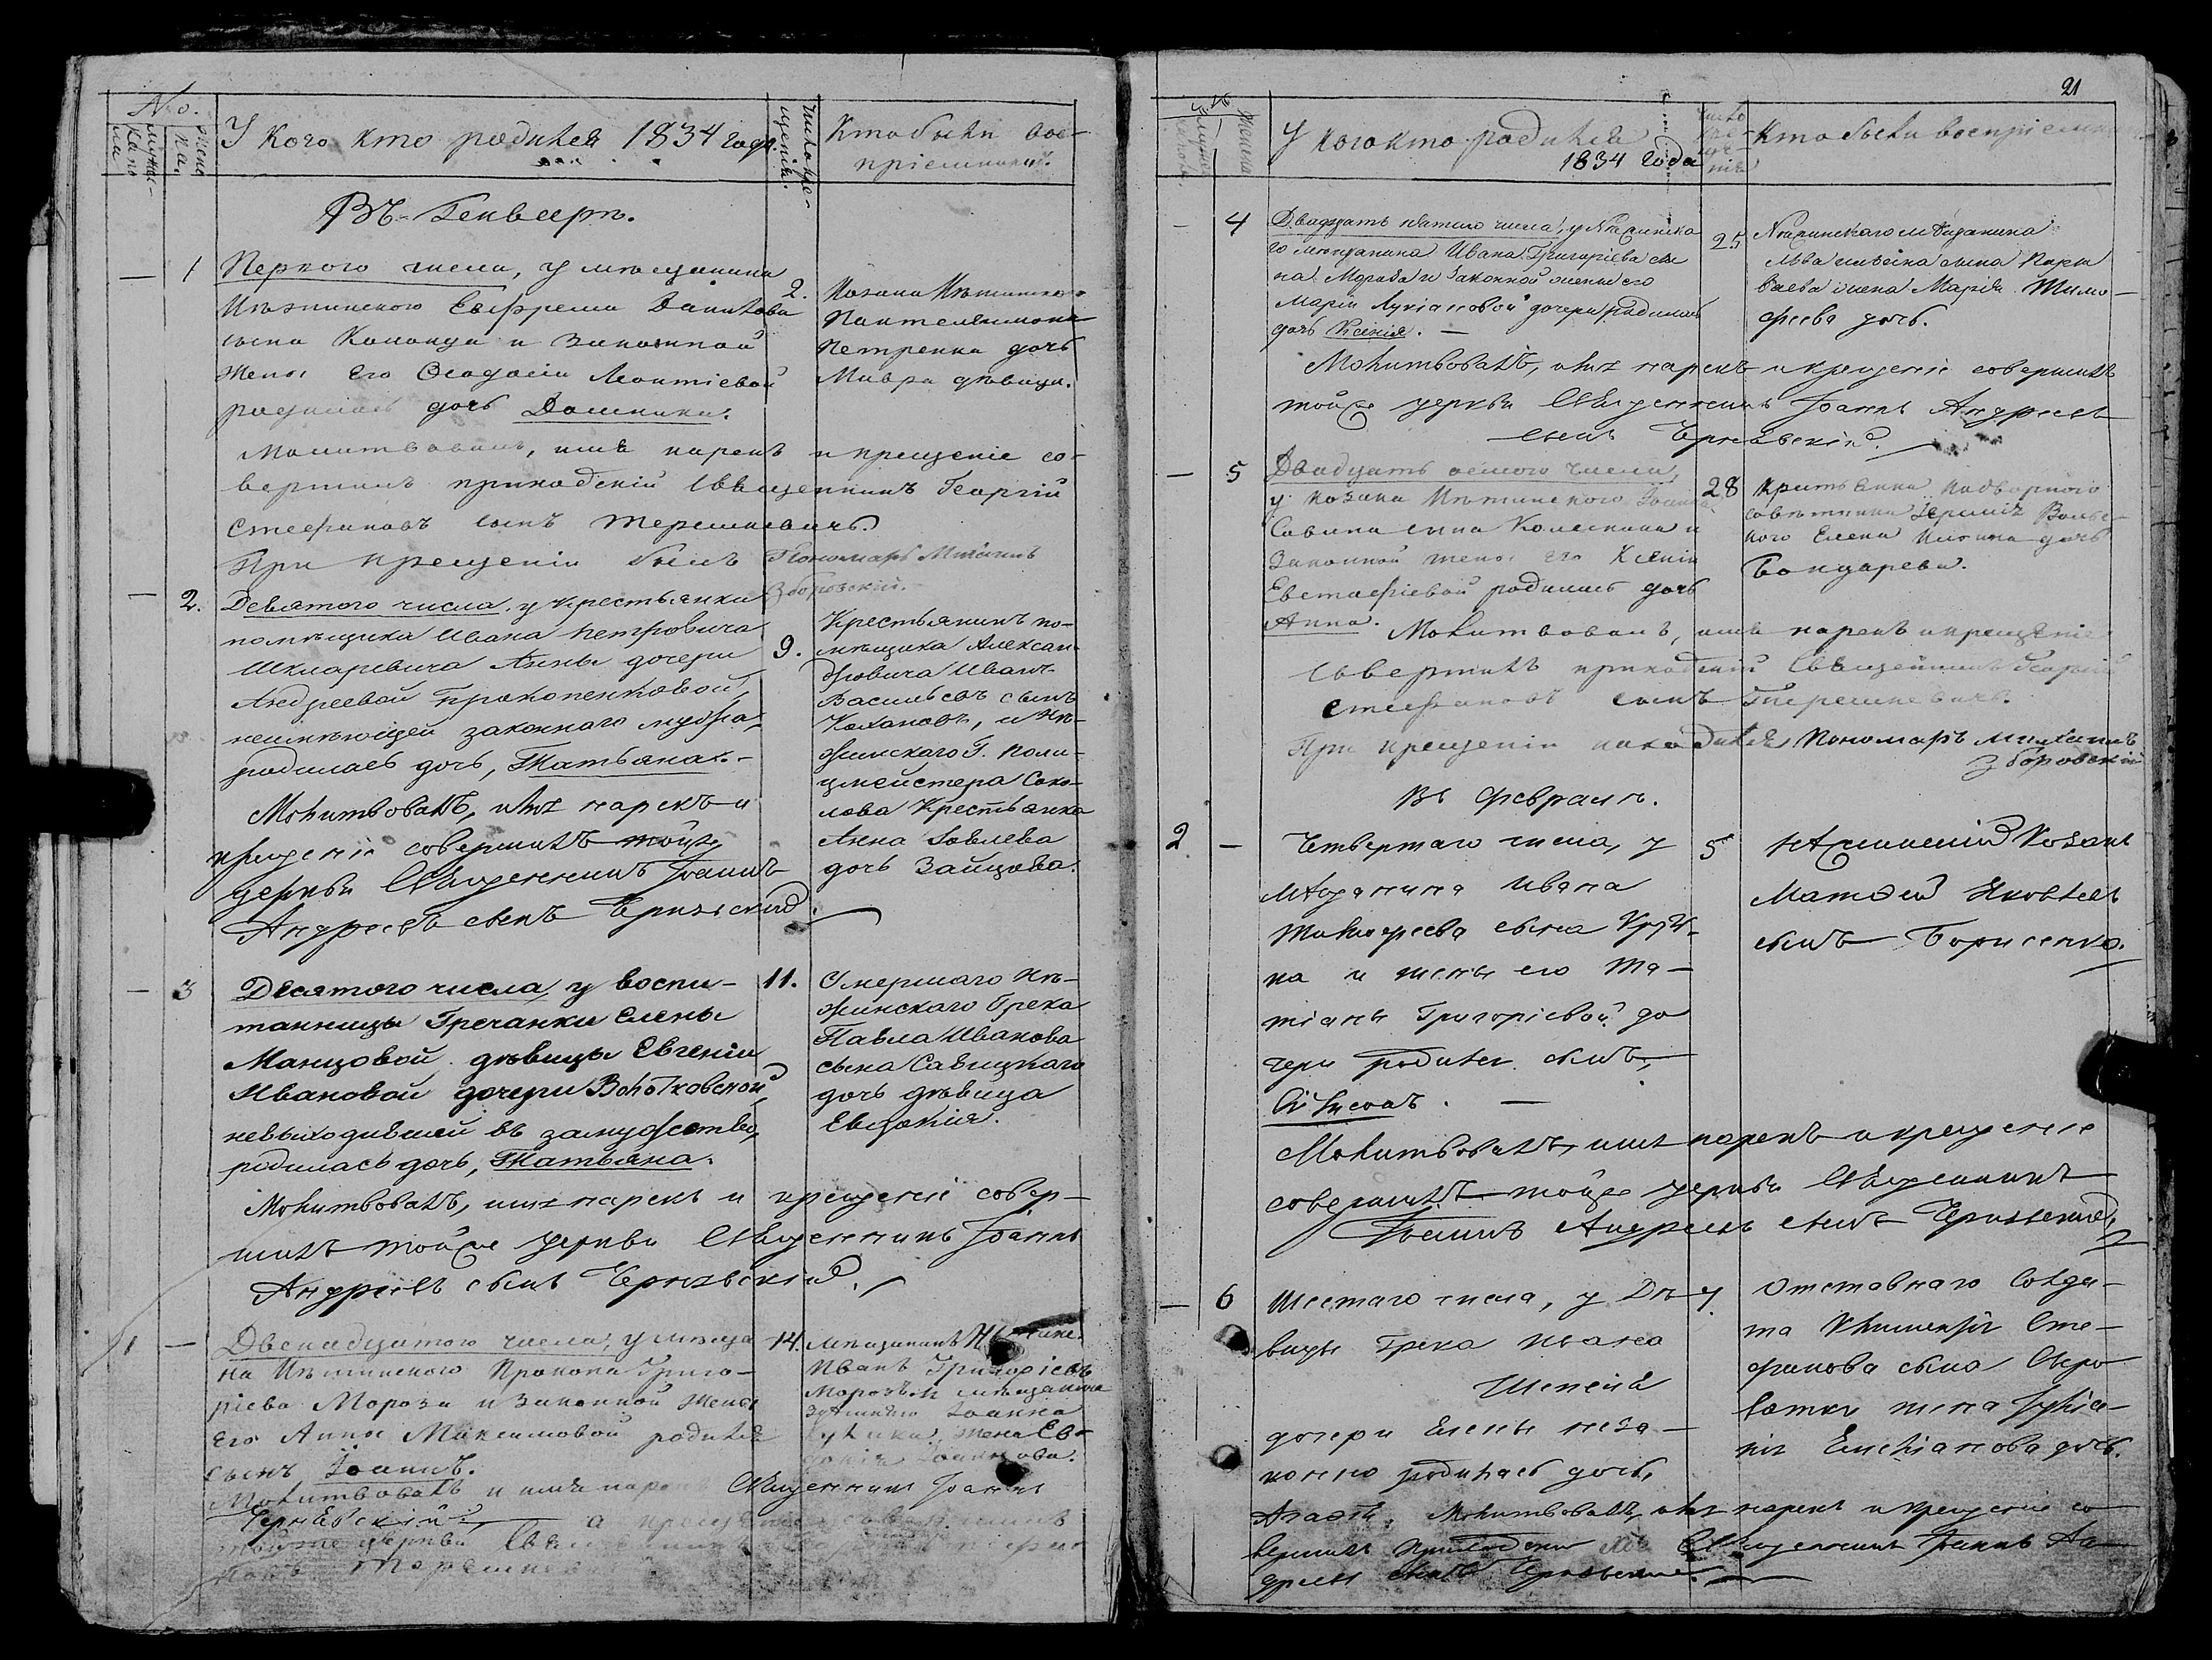 No.
мужеска
женска
У кого кто родился 1834 года
Число крещенія.
Кто были вос-
пріемники.
Въ Генваерѣ.
— 1 Перваго числа, у мѣщанина
Нѣжинского Ефрема Данилова
сына Канонца и законной
жены его Феодосіи Леонтіевой
родилась дочь Домникия.
2.
Козака Нѣжинского
Пантелеимона
Петренка дочь
Мавра дѣвица.
Молитвовалъ, имя нарекъ и крещеніе со-
вершилъ приходскій Священникъ Георгій
Стефановъ сынъ Терешкевичъ.
При крещеніи былъ Пономарь Михаилъ
Зборовскій.
— 2. Девятого числа, у крестьянки
помѣщика Ивана Петровича
Шкляревича Анны дочери
Андреевой Прокопенковой,
неимѣющей законнаго мужа,
родилась дочь, Татьяна.
9.
Крестьянинъ по-
мѣщика Алексан-
дровича Иванъ
Васильевъ сынъ
Кохановъ, и Нѣ-
жинскаго Г. Поли-
цмейстера Соко-
лова Крестьянка
Анна Іовлева
дочь Зайцова.
Молитвовалъ, имя нарекъ и
крещеніе совершилъ тойже
церкви Священникъ Іоаннъ
Андреевъ сынъ Чернявскій.
— 3 Десятого числа, у воспи-
танницы Гречанки Елены
Манцовой дѣвицы Евгеніи
Ивановой дочери Волотковской,
невыходившей въ замужство,
родилась дочь, Татьяна.
11.
Умершаго Нѣ-
жинскаго Грека
Павла Иванова
сына Савицкаго
дочь дѣвица
Евдокія.
Молитвовалъ, имя нарекъ и крещеніе совер-
шилъ тойже церкви Священникъ Іоаннъ
Андреевъ сынъ Чернявскій.
1 — Двенадцатого числа, у мѣща
на Нѣжинского Прокопа Григо-
ріева Мороза и законной жены
его Анны Максимовой родился
сынъ Іоаннъ.
14.
Мѣщанинъ
Иванъ Григоріевъ
Морозъ и мѣщанина
Іоанна
жена Ев-
докія Іоаннова.
Молитвовалъ и имя нарекъ Священникъ Іоаннъ
Чернявскій, а крещеніе совершилъ
тойже церкви Священникъ
21
У кого кто родился
1834 года
Число
кре-
ще-
нія
Кто были воспріемники
— 4 Двадцать пятого числа, у Нѣжинска
го мѣщанина Ивана Григоріева сы
на Мороза и законной жены его
Маріи Лукіановой дочери родилась
дочь Ксенія. —
25
Нѣжинскаго мѣщанина
Льва сына
жена Марія Тимо-
феева дочь.
Молитвовалъ, имя нарекъ и крещеніе совершилъ
тойже церкви Священникъ Іоаннъ Андреевъ
сынъ Чернявскій.
— 5 Двадцать осмого числа,
у козака Нѣжинского Іоанна
Савина сына Колесника и
законной жены его Ксеніи
Евстафіевой родилась дочь
Анна.
28
Крестьянка надворного
совѣтника
Елена дочь
Бондарева.
Молитвовалъ, имя нарекъ и крещеніе
совершилъ приходскій Священникъ Георгій
Стефановъ сынъ Терешкевичъ.
При крещеніи находился Пономарь Михаилъ
Зборовскій
Въ Февралѣ.
2 — Четвертаго числа, у
мѣщанина Ивана
Тимофеева сына
и жены его Та-
тіаны Григоріевой до
чери родился сынъ,
5
Нѣжинскій Козакъ
Матѳей Яковлевъ
сынъ Борисенко.
Молитвовалъ, имя нарекъ и крещеніе
совершилъ тойже церкви Священникъ
Іоаннъ Андреевъ сынъ Чернявскій.
— 6 Шестаго числа, у Дѣ-
вицы Грека Ивана
дочери Елены неза-
конно родилась дочь,
Агаѳія.
7.
Отставнаго Солда-
та Сте-
фанова сына Сыро
ватки жена
Емельянова дочь.
Молитвовалъ, имя нарекъ и крещеніе со
вершилъ Священникъ Іоаннъ Ан-
дреевъ сынъ Чернявскій.